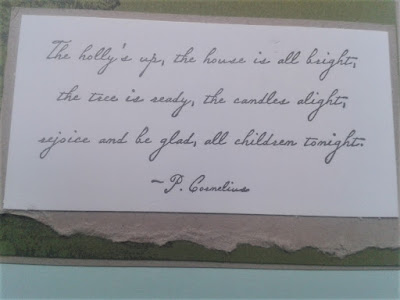 The holly's up, the house is all bright,
the tree is ready, the candles alight,
rejoice and be glad, all children tonight.
~ P. Cornelius